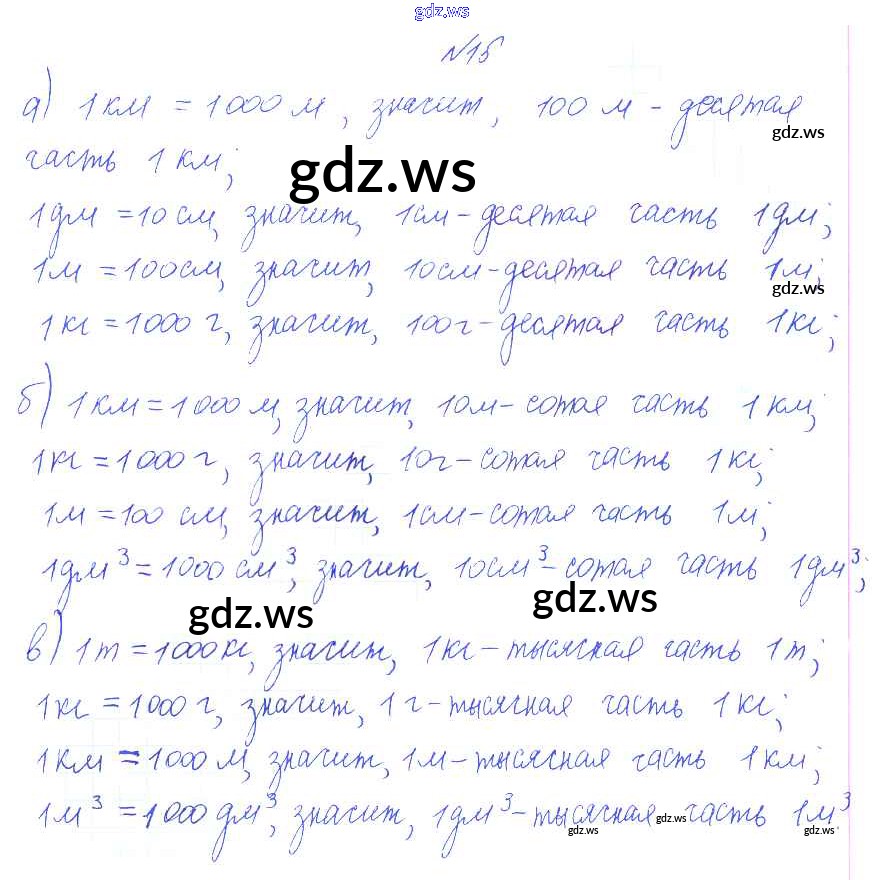 gdz.ws
№15
а) 1 км = 1000 м, значит, 100 м - десятая
gdz.ws
часть 1 км;
gdz.ws
1дм = 10 см, значит, 1см - десятая часть 1дм;
1м = 100см, значит, 10см - десятая часть 1м;
gdz.ws
1кг = 1000 г, значит, 100г - десятая часть 1кг;
б) 1 км = 1000 м, значит, 10м - сотая часть 1 км;
1кг = 1000 г, значит, 10г - сотая часть 1кг;
1м = 100 см, значит, 1см - сотая часть 1м;
1дм³ = 1000 см³, значит, 10см³ - сотая часть 1дм³;
gdz.ws gdz.ws
в) 1т = 1000кг, значит, 1кг - тысячная часть 1т;
1кг = 1000 г, значит, 1г - тысячная часть 1кг;
1км = 1000 м, значит, 1м - тысячная часть 1км;
1м³ = 1000 дм³, значит, 1дм³ - тысячная часть 1м³
gdz.ws gdz.ws gdz.ws